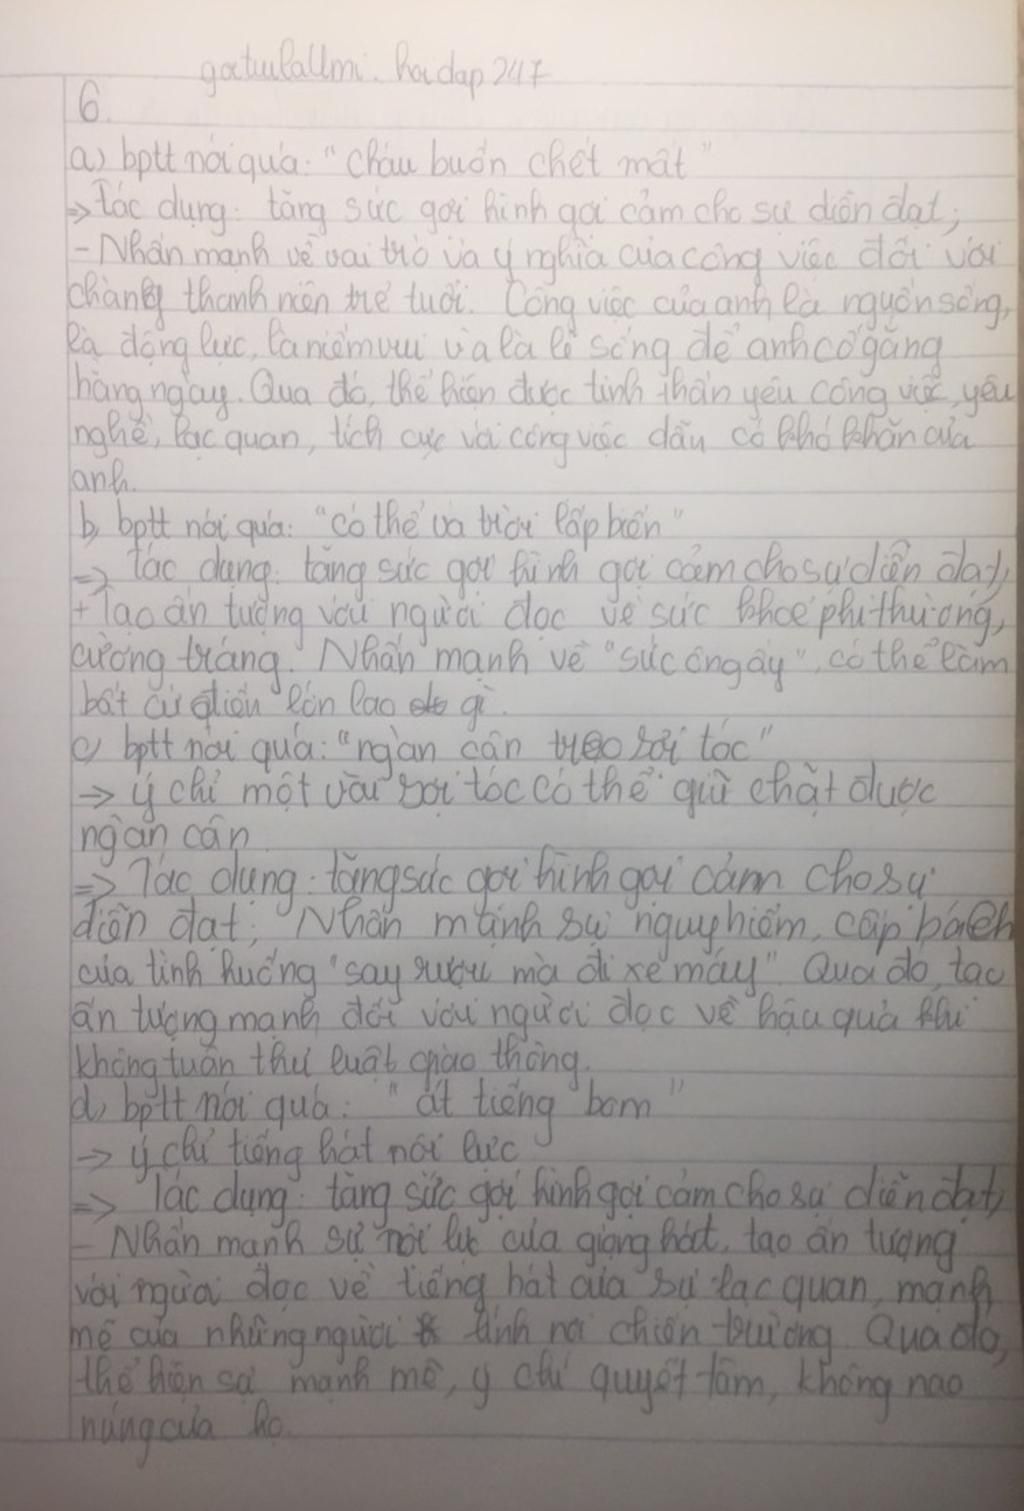 hoidap247
6.
a) bptt nói quá: "cháu buồn chết mất"
=> Tác dụng: tăng sức gợi hình gợi cảm cho sự diễn đạt;
- Nhấn mạnh về vai trò và ý nghĩa của công việc đối với
chàng thanh niên trẻ tuổi. Công việc của anh là nguồn sống,
là động lực, là niềm vui và là lẽ sống để anh cố gắng
hàng ngày. Qua đó, thể hiện được tinh thần yêu công việc, yêu
nghề, lạc quan, tích cực với công việc dẫu có khó khăn của
anh.
b, bptt nói quá: "có thể vá trời lấp biển"
=> Tác dụng: tăng sức gợi hình gợi cảm cho sự diễn đạt;
+ Tạo ấn tượng với người đọc về sức khoẻ phi thường,
cường tráng. Nhấn mạnh về "sức ông ấy", có thể làm
bất cứ điều lớn lao gì.
c) bptt nói quá: "ngàn cân treo sợi tóc"
-> ý chỉ một vài sợi tóc có thể giữ chặt được
ngàn cân
=> Tác dụng: tăng sức gợi hình gợi cảm cho sự
diễn đạt; Nhấn mạnh sự nguy hiểm, cấp bách
của tình huống "say rượu mà đi xe máy". Qua đó, tạo
ấn tượng mạnh đối với người đọc về hậu quả khi
không tuân thủ luật giao thông.
d, bptt nói quá: "át tiếng bom"
-> ý chỉ tiếng hát nội lực
=> Tác dụng: tăng sức gợi hình gợi cảm cho sự diễn đạt;
- Nhấn mạnh sự nội lực của giọng hát, tạo ấn tượng
với người đọc về tiếng hát của sự lạc quan, mạnh
mẽ của những người lính nơi chiến trường. Qua đó,
thể hiện sự mạnh mẽ, ý chí quyết tâm, không nao
núng của họ.